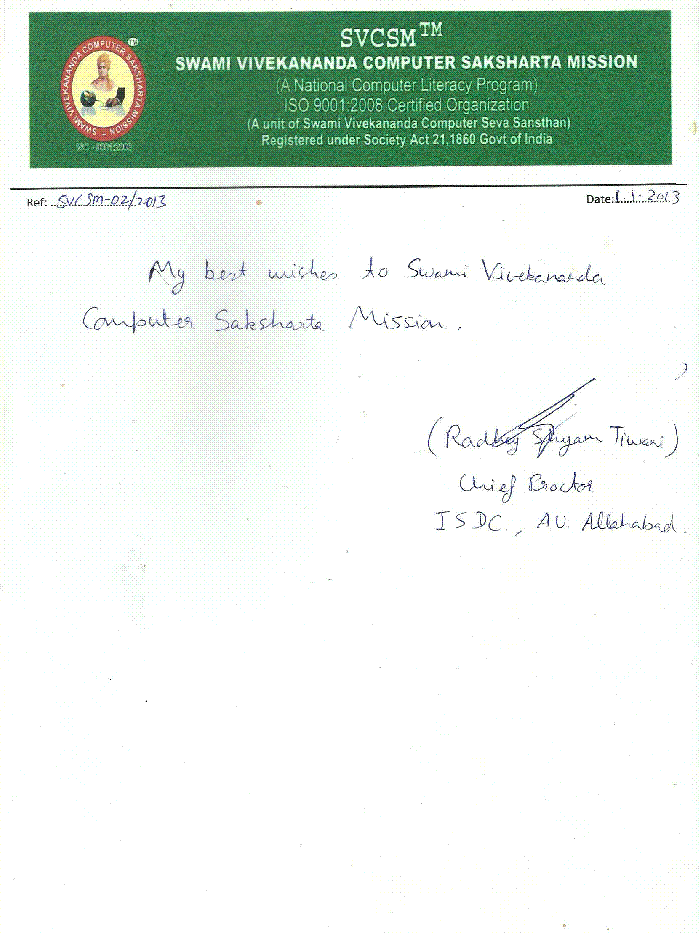 SVCSM™
SWAMI VIVEKANANDA COMPUTER SAKSHARTA MISSION
(A National Computer Literacy Program)
ISO 9001:2008 Certified Organization
(A unit of Swami Vivekananda Computer Seva Sansthan)
Registered under Society Act 21,1860 Govt of India
SWAMI VIVEKANANDA COMPUTER SAKSHARTA MISSION
TM
Ref: SVCSM-02/2013
Date: 1.1.2013
My best wishes to Swami Vivekananda
Computer Saksharta Mission.
(Radhey Shyam Tiwari)
Chief Proctor
ISDC, AU Allahabad.